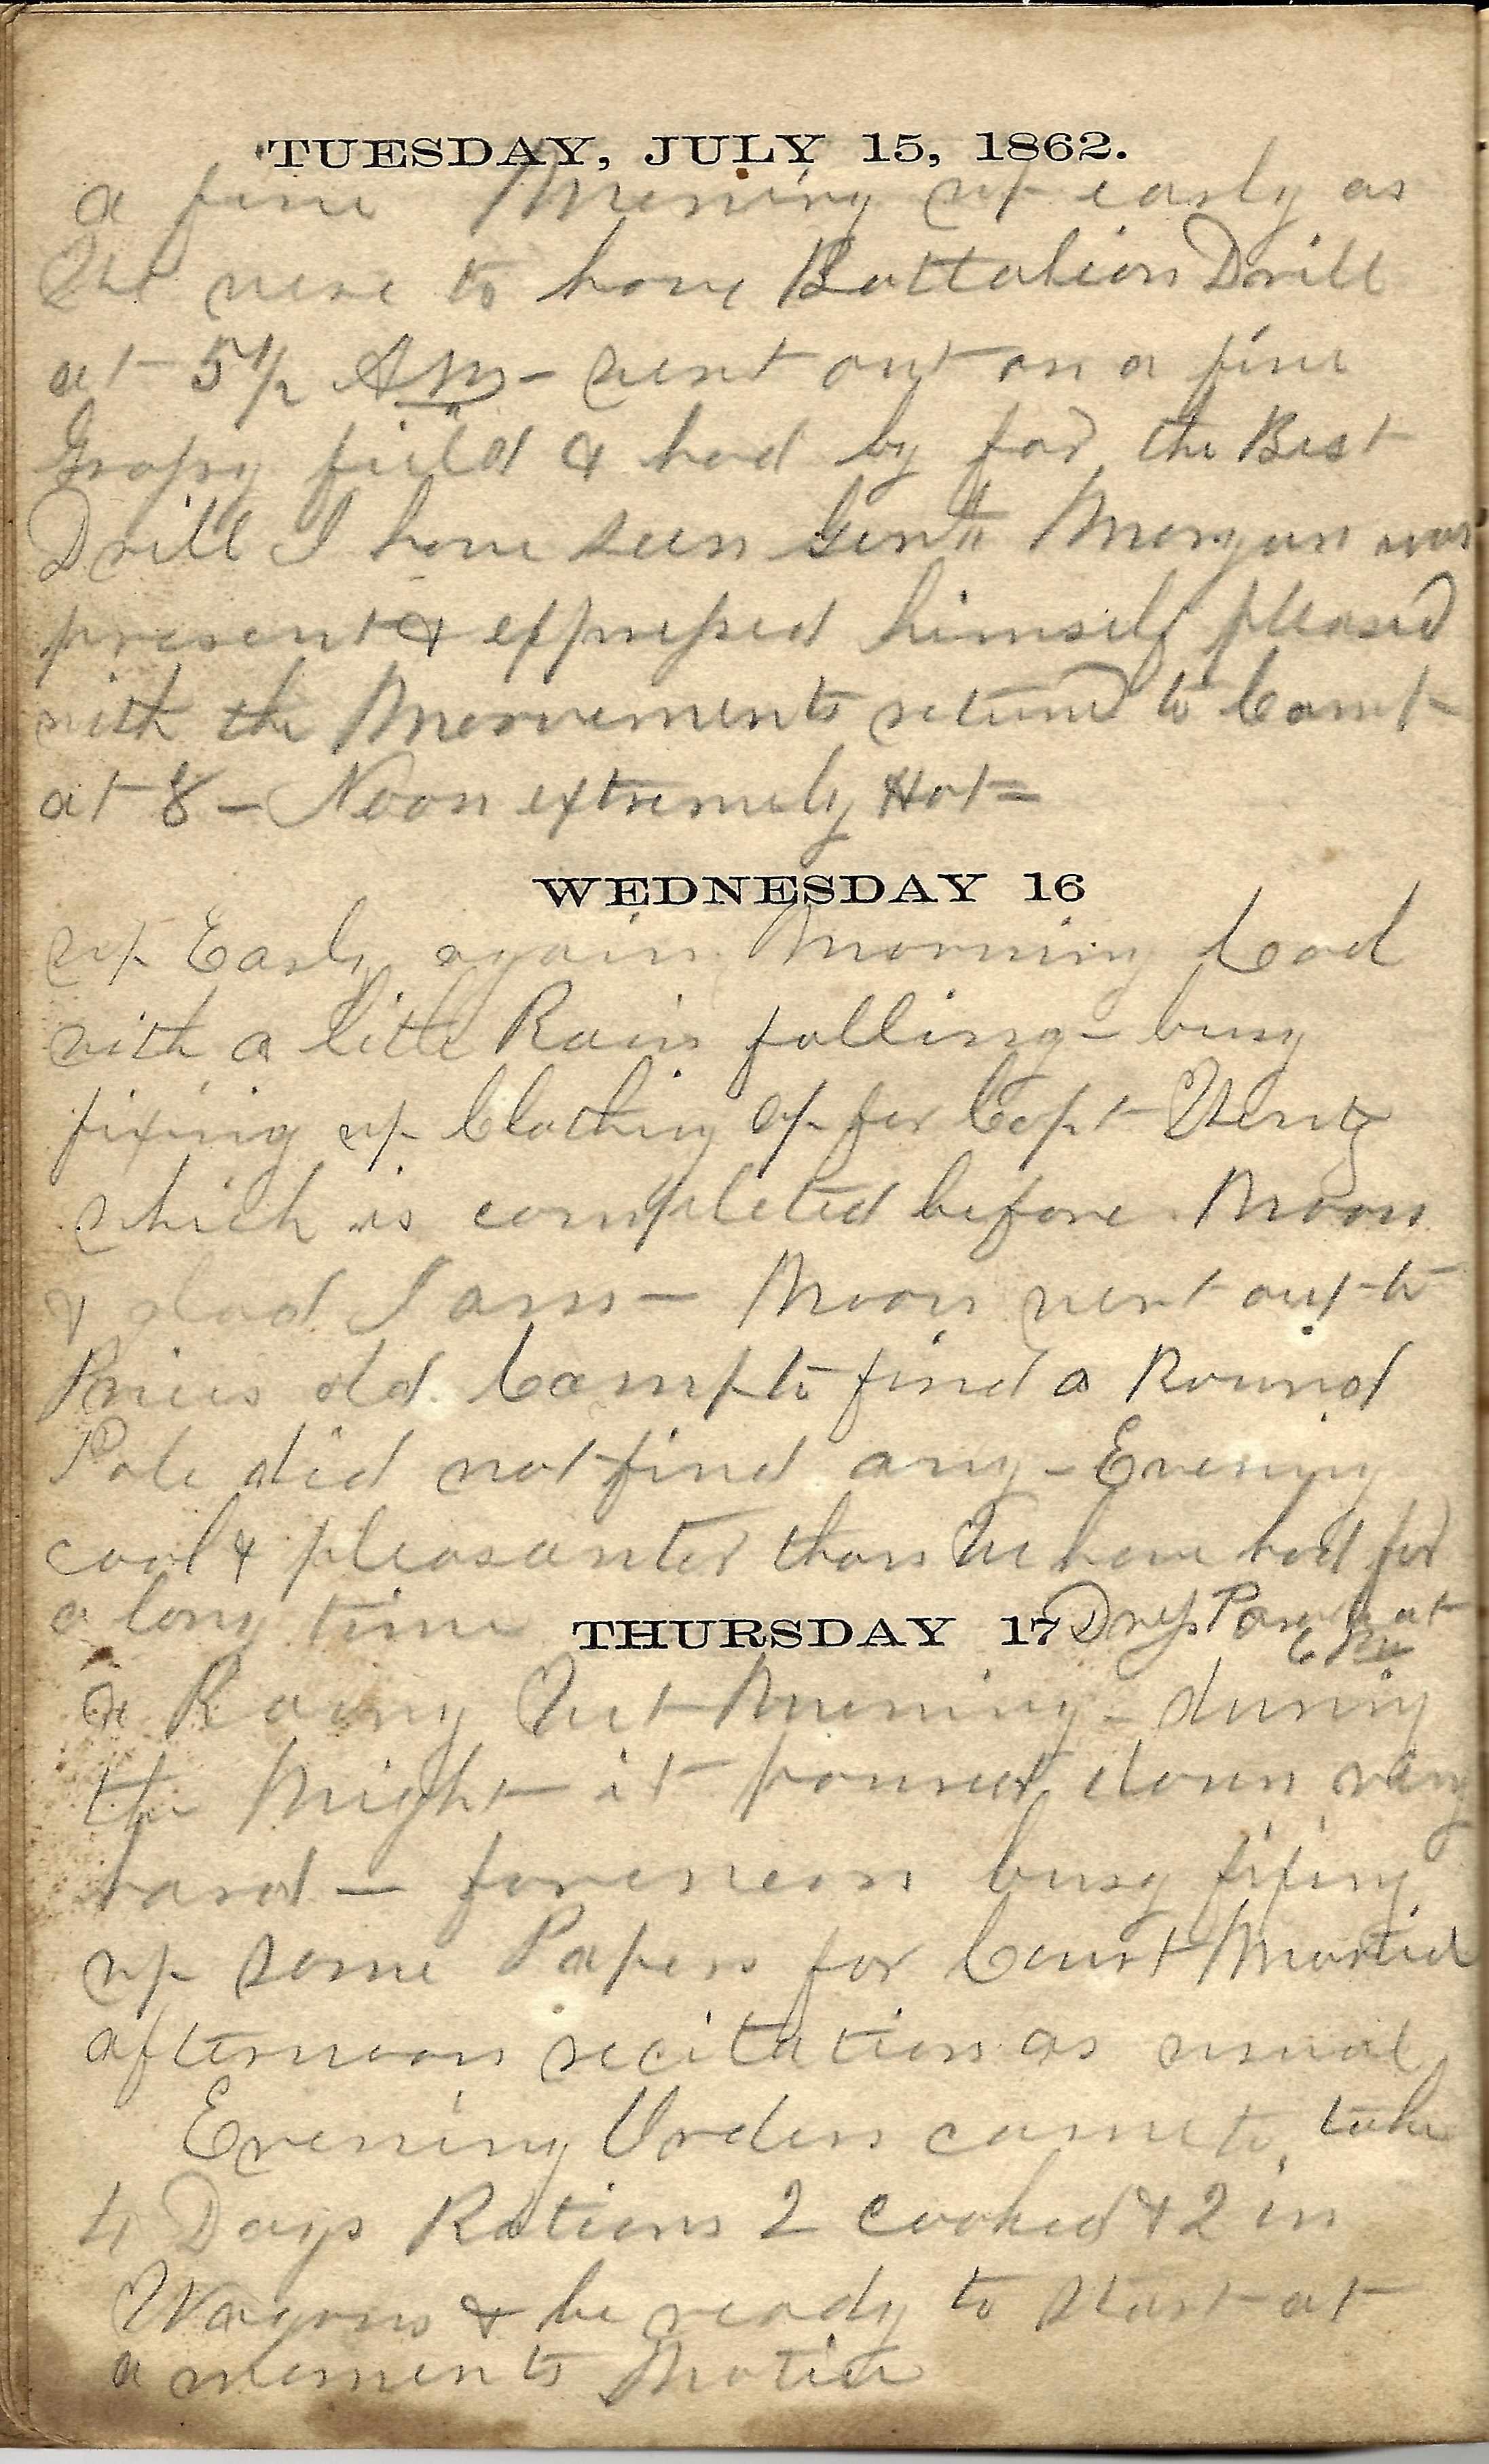 TUESDAY, JULY 15, 1862.
a fine Morning up early as
We were to have Battalion Drill
at 5 1/2 AM - went out on a fine
Grassy field & had by far the Best
Drill I have seen Genll Morgan was
present & expressed himself pleasd
with the Movements returnd to Camp
at 8 - Noon extremely Hot =
WEDNESDAY 16
up Early again Morning Cool
with a little Rain falling - busy
fixing up Clothing a/c for Capt
which is completed before Noon
& glad I am - Noon went out to
Prices old Camp to find a Round
Pole did not find any - Evening
cool & pleasanter than We have had for
a long time
Dress Parade at
6 PM
THURSDAY 17
a Rainy Wet Morning - during
the Night it poured down very
hard - forenoon busy fixing
up some Papers for Court Martial
afternoon recitation as usual
Evening Orders came to take
4 Days Rations 2 cooked & 2 in
Wagons & be ready to start at
a moments Notice